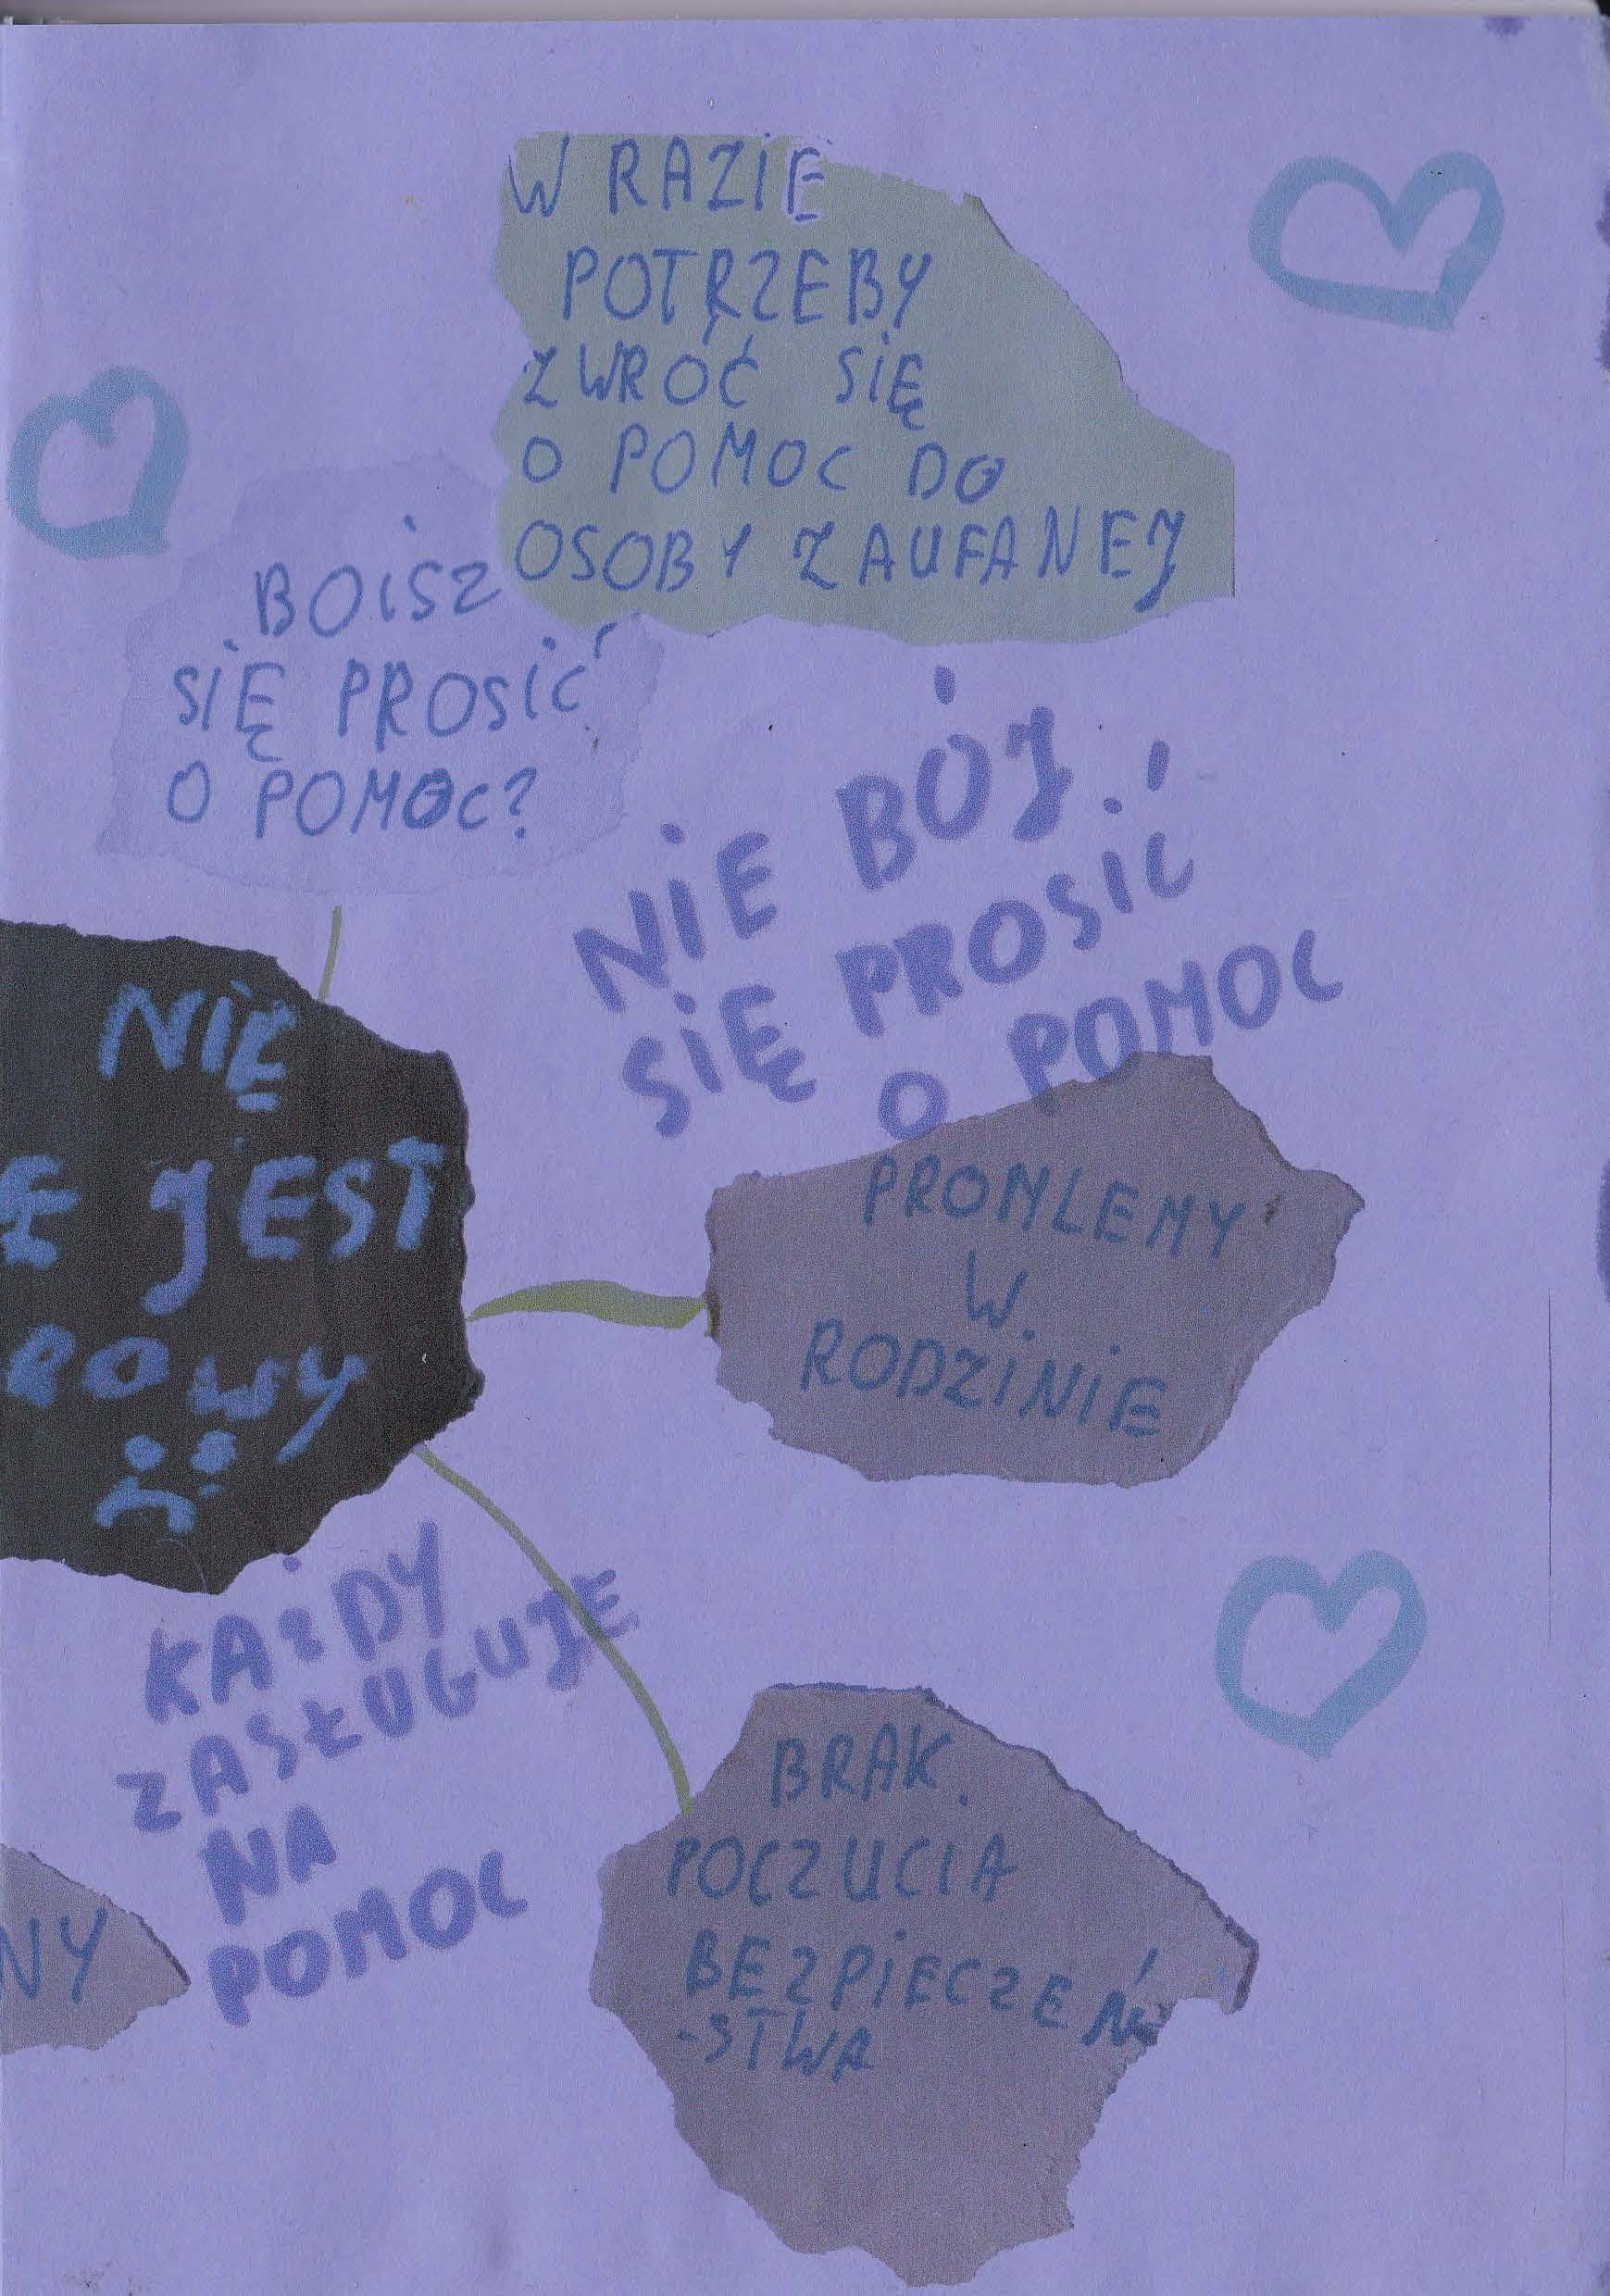 W RAZIE
POTRZEBY
ZWRÓĆ SIĘ
O POMOC DO
OSOBY ZAUFANEJ
BOISZ
SIĘ PROSIĆ
O POMOC?
NIE BÓJ
SIĘ PROSIĆ
O POMOC
NIE
JEST
ROWY
PROMLEMY
W
RODZINIE
KAŻDY
ZASŁUGUJE
NA
POMOC
BRAK
POCZUCIA
BEZPIECZEŃ
-STWA
NY